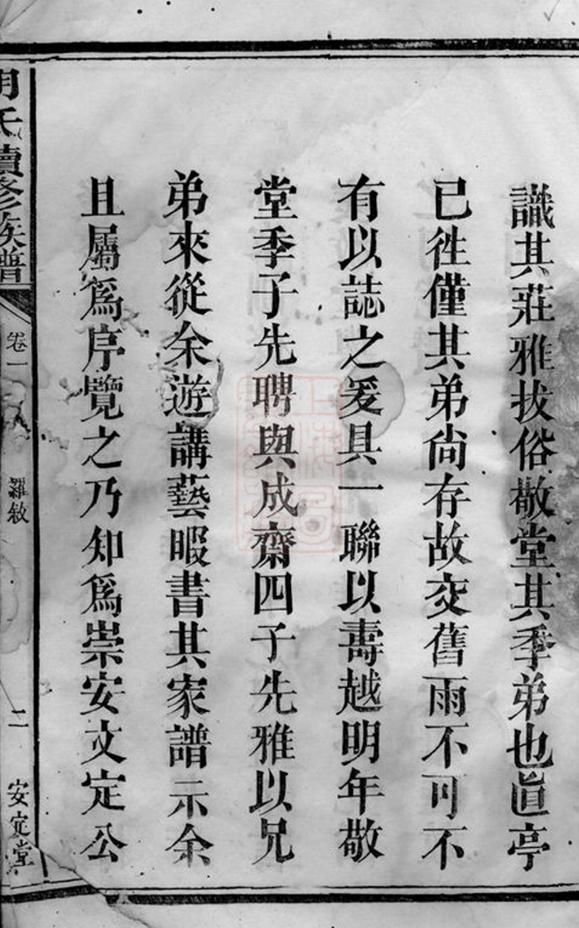 識其莊雅拔俗敬堂其季弟也直亭
已徃僅其弟尚存故交舊雨不可不
有以誌之爰具一聯以壽越明年敬
堂季子先聘與成齋四子先雅以兄
弟來從余遊講藝暇書其家譜示余
且屬爲序覽之乃知爲崇安文定公
氏續修族譜
卷一
羅敘
二
安定堂